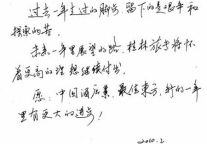 过去一年走过的脚步，留下的是艰辛和
探索的苦。
未来一年里展望的路，桂林旅专将怀
着更高的理想继续付出。
愿：中国酒店业、最佳东方，新的一年
里有更大的进步！
2010.2.